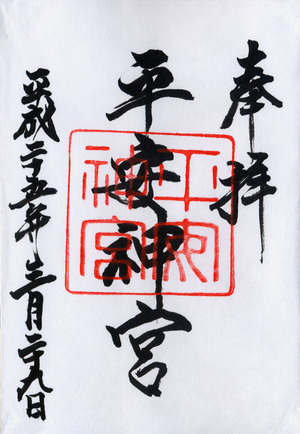 奉拝
平安神宮
平安神宮
平成二十五年三月二十九日